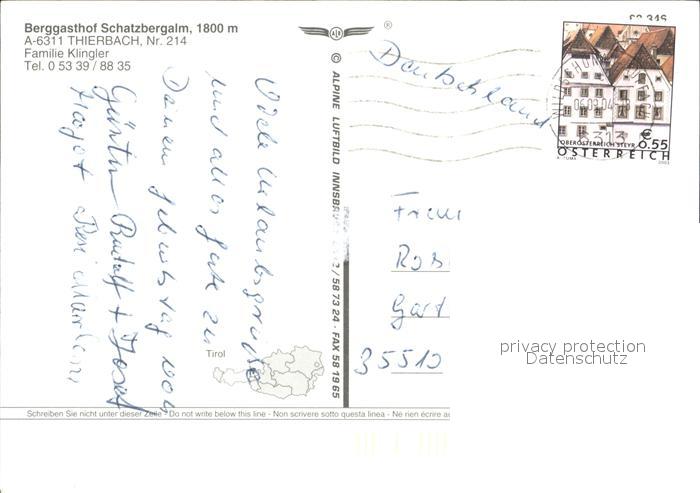 Berggasthof Schatzbergalm, 1800 m
A-6311 THIERBACH, Nr. 214
Familie Klingler
Tel. 0 53 39 / 88 35
Viele Urlaubsgrüße
und alles Gute zu
Deinem Geburtstag von
Günter Rudolf + Josef
Margot Rosi Marlene
Tirol
© ALPINE LUFTBILD INNSBRUCK / 58 73 24 · FAX 58 19 65
®
Deutschland
06.09.04
6313
€
0.55
OBERÖSTERREICH STEYR
ÖSTERREICH
2003
Frau
Ros
Gart
35510
privacy protection
Datenschutz
Schreiben Sie nicht unter dieser Zeile - Do not write below this line - Non scrivere sotto questa linea - Ne rien écrire au